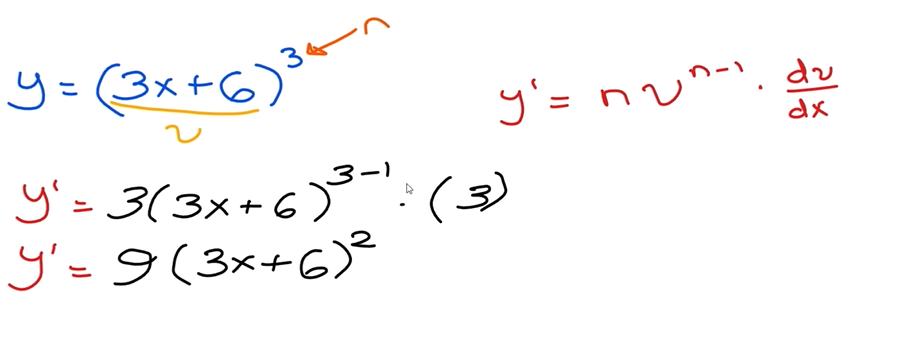 n
y = (3x+6)^3
v
y' = n v^{n-1} · dv/dx
y' = 3(3x+6)^{3-1} · (3)
y' = 9(3x+6)^2